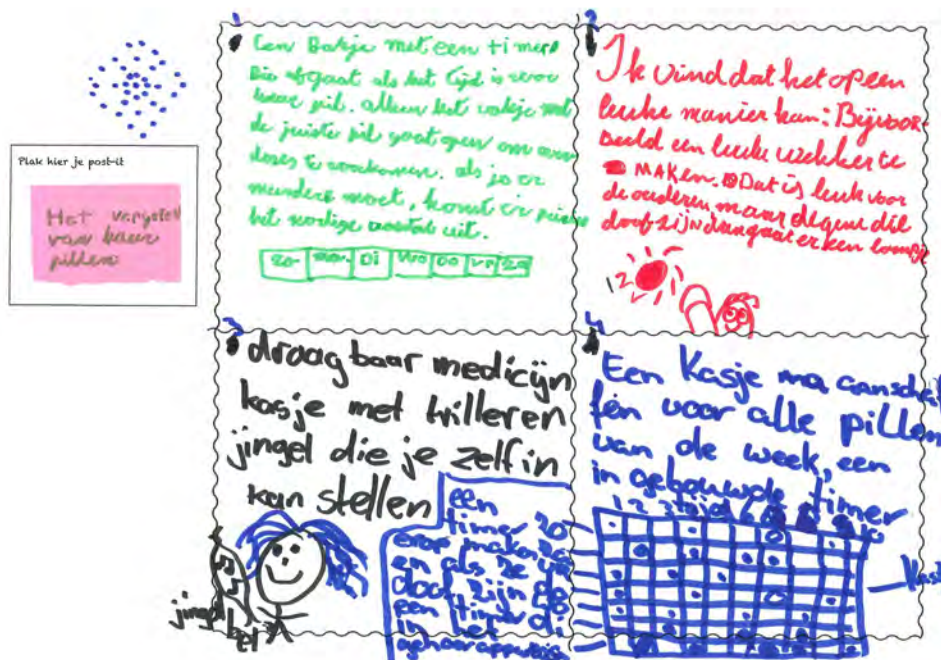 Plak hier je post-it
Het vergeten
van haar
pillen
1
Een Bakje met een timer
Die afgaat als het tijd is voor
haar pil. alleen het vakje met
de juiste pil gaat open om over
doses te voorkomen. als je er
meerdere moet, komt er precies
het nodige aantal uit.
zo ma Di Wo Do vr za
2
Ik vind dat het op een
leuke manier kan: Bijvoor-
beeld een leuke wekker te
MAKen. Dat is leuk voor
de ouderen maar degene die
doof zijn dan gaat er een lampje
3
draagbaar medicijn
kasje met trilleren
jingel die je zelf in
kan stellen
jingel
bel
een
timer
erop maken
en als ze
doof zijn
een timer
in het
gehoorapparaat
4
Een Kasje
voor alle pillen
van de week, een
in gebouwde timer
1 2 3 tijd
Kast